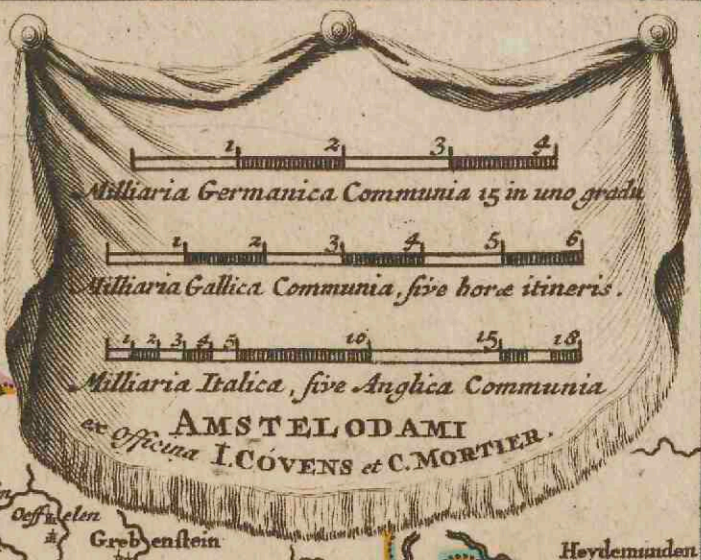 1 2 3 4
Milliaria Germanica Communia 15 in uno gradu
1 2 3 4 5 6
Milliaria Gallica Communia, ſive horæ itineris.
1 2 3 4 5 10 15 18
Milliaria Italica, ſive Anglica Communia
AMSTELODAMI
ex Officina I. CÓVENS et C. MORTIER.
Grebenſtein
Heydemunden